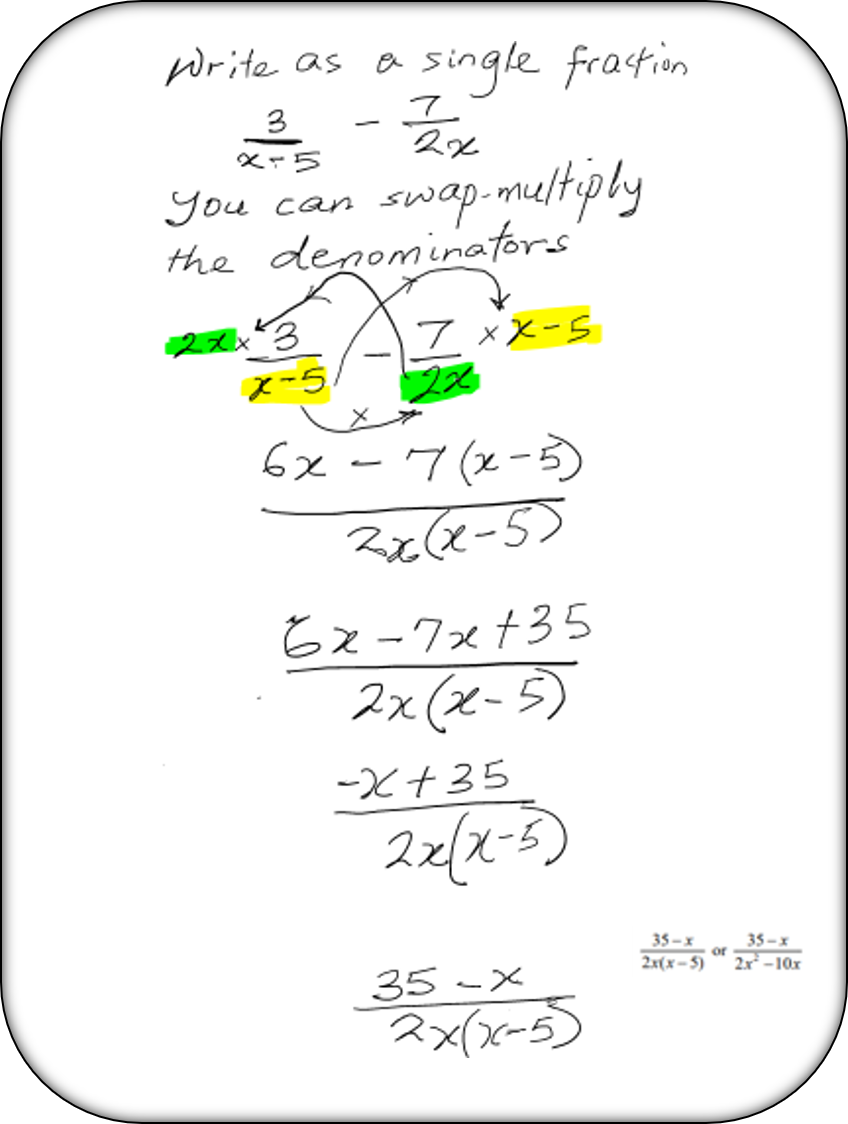 Write as a single fraction
3/(x-5) - 7/(2x)
You can swap-multiply
the denominators
2x × 3/(x-5) - 7/(2x) × x-5
×
×
(6x - 7(x-5))/(2x(x-5))
(6x - 7x + 35)/(2x(x-5))
(-x + 35)/(2x(x-5))
(35-x)/(2x(x-5)) or (35-x)/(2x²-10x)
(35 - x)/(2x(x-5))